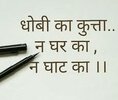 धोबी का कुत्ता..
न घर का ,
न घाट का ।।